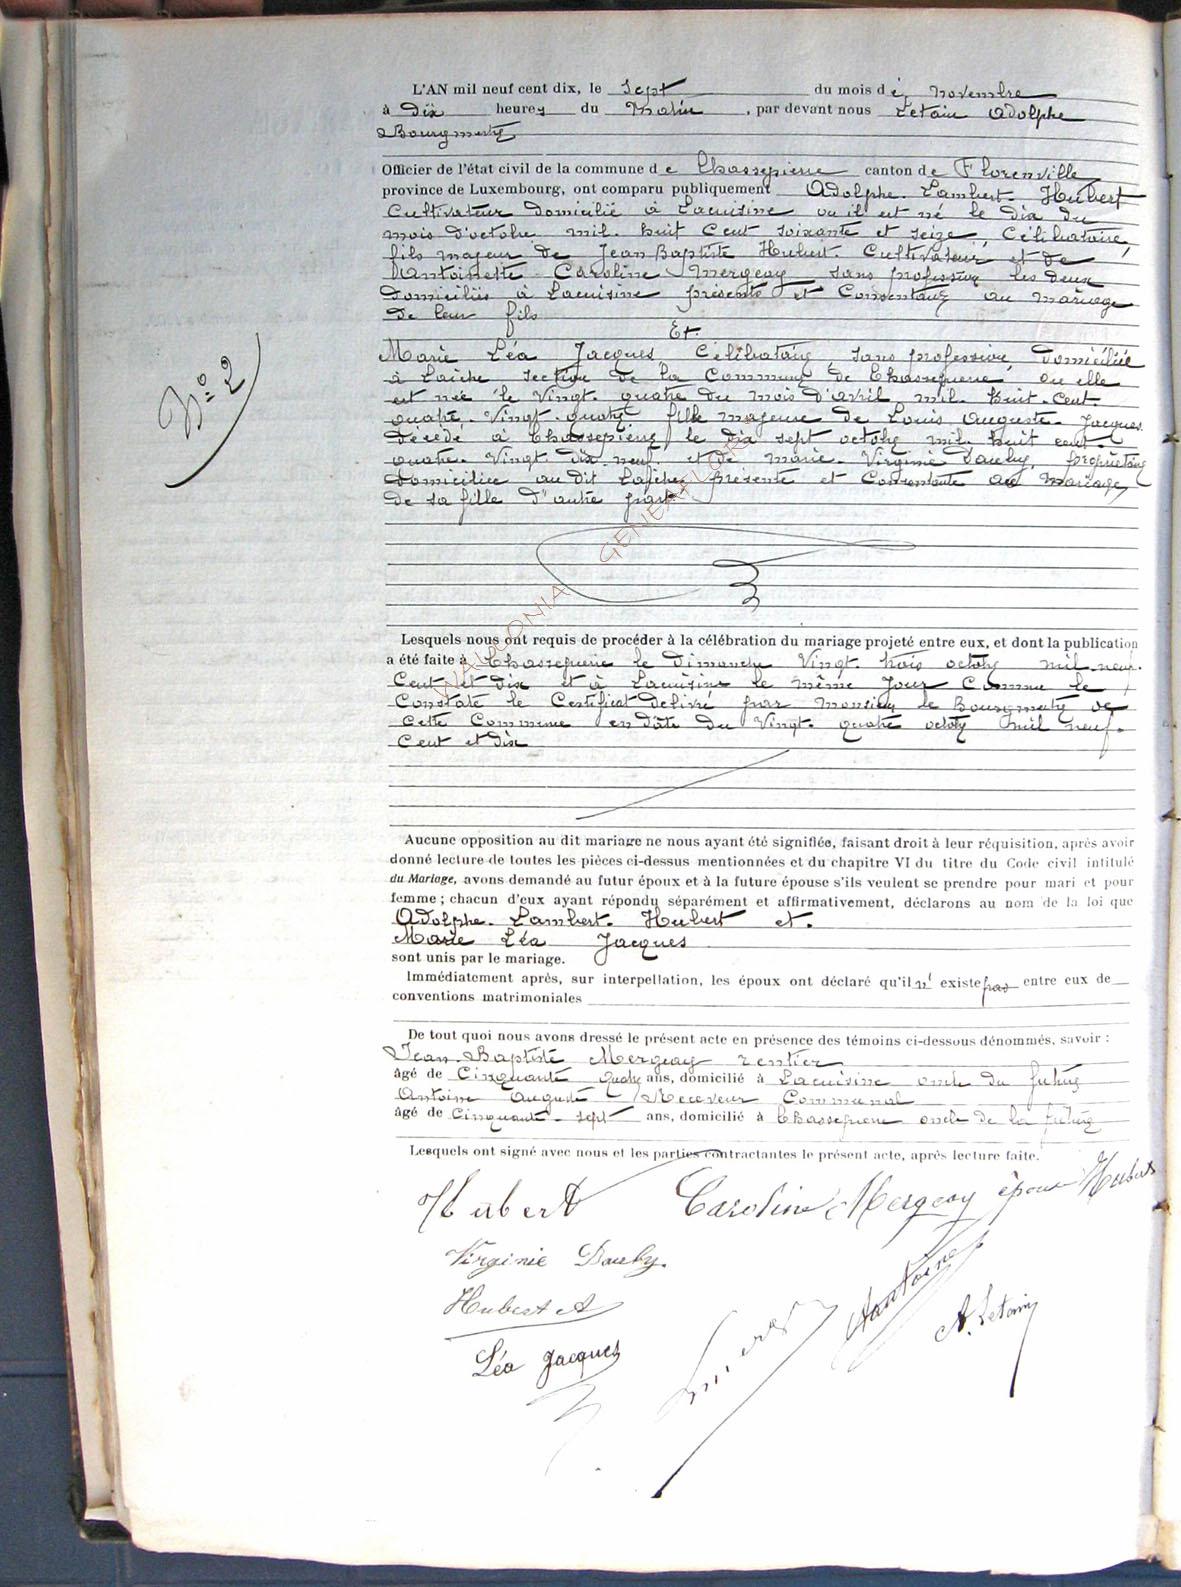 L'AN mil neuf cent dix, le sept du mois de novembre
à dix heures du matin, par devant nous Letain Adolphe
Bourgmestre
Officier de l'état civil de la commune de Chassepierre canton de Florenville
province de Luxembourg, ont comparu publiquement Adolphe Lambert Hubert
Cultivateur domicilié à Lacuisine où il est né le dix du
mois d'octobre mil huit cent soixante et seize, Célibataire,
fils majeur de Jean Baptiste Hubert Cultivateur et de
Antoinette Caroline Mergeay sans profession les deux
domiciliés à Lacuisine présents et Consentants au mariage
de leur fils
Et
Marie Léa Jacques, Célibataire, sans profession, domiciliée
à Laiche section de la Commune de Chassepierre, où elle
est née le Vingt quatre du mois d'avril mil huit cent
quatre Vingt quatre fille majeure de Louis Auguste Jacques
décédé à Chassepierre le dix sept octobre mil huit cent
quatre Vingt dix neuf et de Marie Virginie Dauby, propriétaire
domiciliée au dit Laiche présente et Consentante au Mariage
de sa fille d'autre part
N° 2
WALLONIA GENEAFLOR
Lesquels nous ont requis de procéder à la célébration du mariage projeté entre eux, et dont la publication
a été faite à Chassepierre le dimanche Vingt trois octobre mil neuf
Cent et dix et à Lacuisine le même jour Comme le
Constate le Certificat délivré par Monsieur le Bourgmestre de
Cette Commune en date du Vingt quatre octobre mil neuf
Cent et dix
Aucune opposition au dit mariage ne nous ayant été signifiée, faisant droit à leur réquisition, après avoir
donné lecture de toutes les pièces ci-dessus mentionnées et du chapitre VI du titre du Code civil intitulé
du Mariage, avons demandé au futur époux et à la future épouse s'ils veulent se prendre pour mari et pour
femme ; chacun d'eux ayant répondu séparément et affirmativement, déclarons au nom de la loi que
Adolphe Lambert Hubert et
Marie Léa Jacques
sont unis par le mariage.
Immédiatement après, sur interpellation, les époux ont déclaré qu'il n' existe pas entre eux de
conventions matrimoniales
De tout quoi nous avons dressé le présent acte en présence des témoins ci-dessous dénommés, savoir :
Jean Baptiste Mergeay rentier
âgé de Cinquante quatre ans, domicilié à Lacuisine oncle du futur
Antoine Auguste Receveur Communal
âgé de Cinquante sept ans, domicilié à Chassepierre oncle de la future
Lesquels ont signé avec nous et les parties contractantes le présent acte, après lecture faite.
Hubert Caroline Mergeay épouse Hubert
Virginie Dauby.
Hubert A
Antoine
A. Letain
Léa Jacques